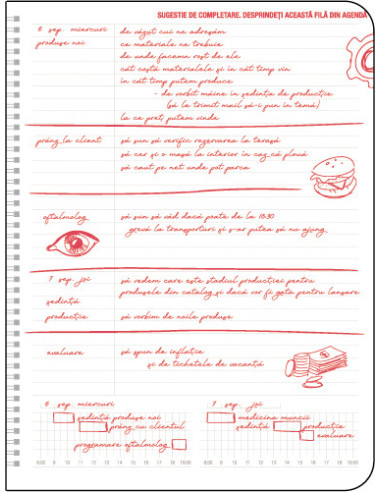 SUGESTIE DE COMPLETARE. DESPRINDEȚI ACEASTĂ FILĂ DIN AGENDĂ
6 sep. miercuri
produse noi
de văzut cui ne adresăm
ce materiale ne trebuie
de unde facem rost de ele
cât costă materialele și în cât timp vin
în cât timp putem produce
- de vorbit mâine în ședința de producție
(să la trimit mail să-i pun în temă)
la ce preț putem vinde
prânz la client
să sun să verific rezervarea la terasă
să cer și o masă la interior în caz că plouă
să caut pe net unde pot parca
oftalmolog
să sun să văd dacă poate de la 18:30
grevă la transporturi și s-ar putea să nu ajung
7 sep. joi
ședință
producție
să vedem care este stadiul producției pentru
produsele din catalog și dacă vor fi gata pentru lansare
să vorbim de noile produse
evaluare
să spun de inflație
și de tichetele de vacanță
6 sep. miercuri
ședință produse noi
prânz cu clientul
programare oftalmolog
8:00 9 10 11 12 13 14 15 16 17 18 19:00
7 sep. joi
medicina muncii
ședință producție
evaluare
8:00 9 10 11 12 13 14 15 16 17 18 19:00